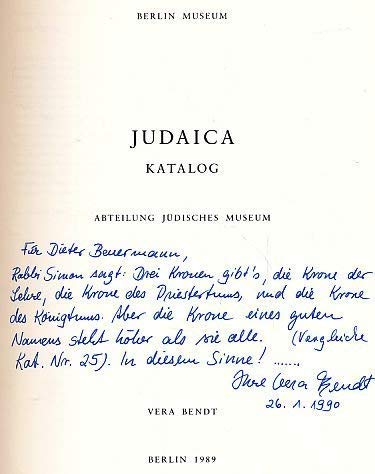 BERLIN MUSEUM
JUDAICA
KATALOG
ABTEILUNG JÜDISCHES MUSEUM
Für Dieter Beuermann,
Rabbi Simon sagt: Drei Kronen gibt's, die Krone der
Lehre, die Krone des Priestertums, und die Krone
des Königtums. Aber die Krone eines guten
Namens steht höher als sie alle. (Vergleiche
Kat. Nr. 25). In diesem Sinne! .......
Ihre Vera Bendt
26. 1. 1990
VERA BENDT
BERLIN 1989